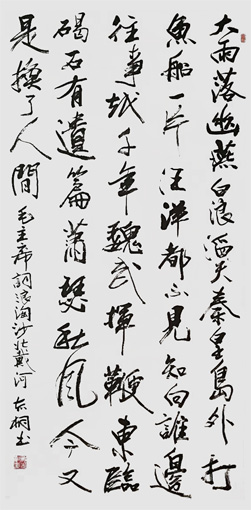 大雨落幽燕白浪滔天秦皇島外打
魚船一片汪洋都不見知向誰邊
往事越千年魏武揮鞭東臨
碣石有遺篇蕭瑟秋風今又
是換了人間 毛主席詞浪淘沙北戴河 桐书